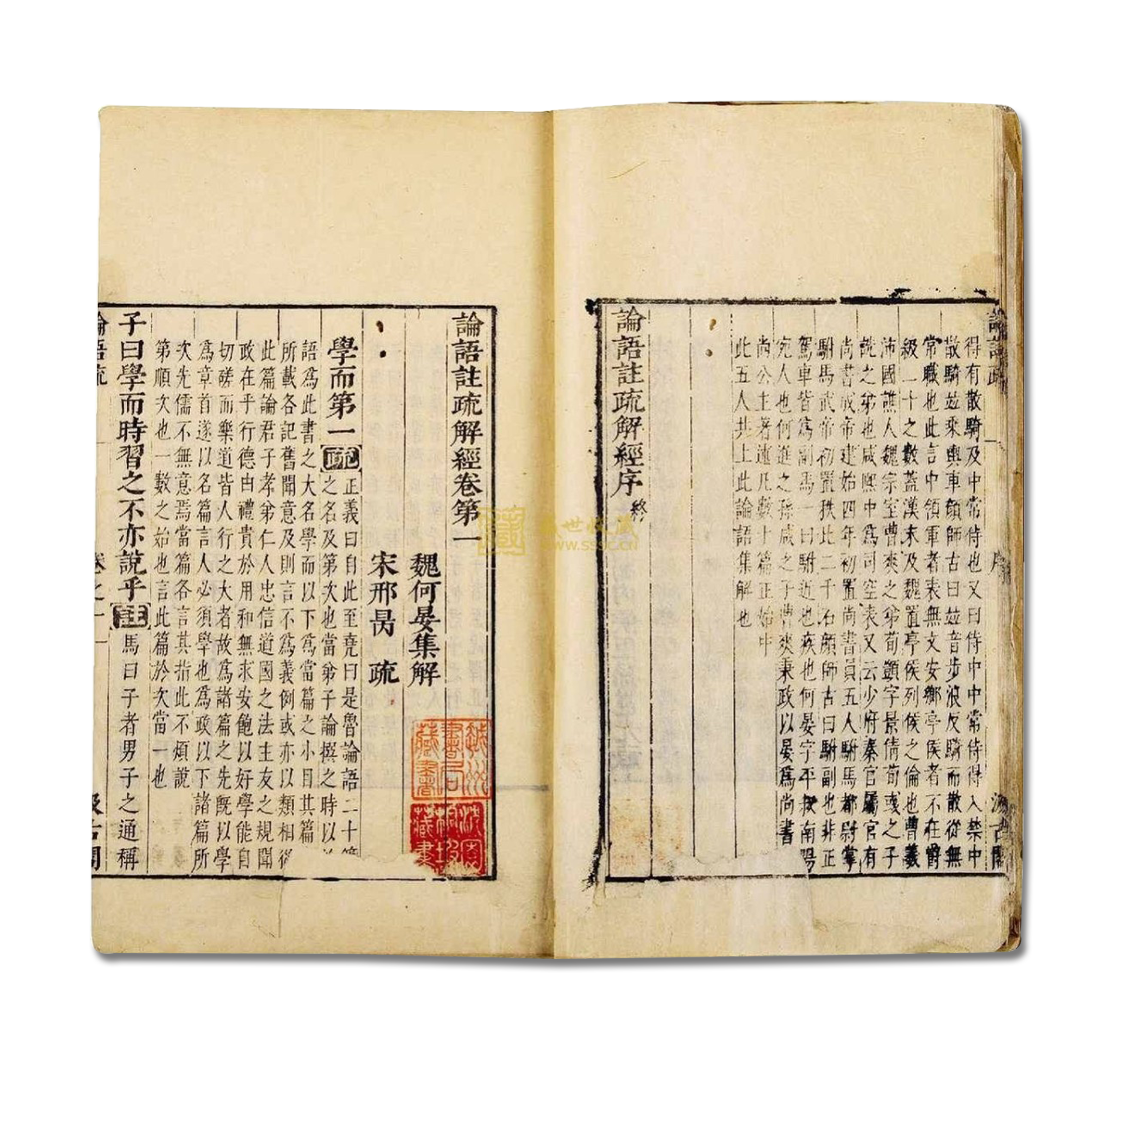 論語疏
序
汲古閣
得有散騎及中常侍也又曰侍中中常侍得入禁中
散騎並乘輿車顏師古曰並音步浪反騎而散從無
常職也此言中領軍者表無文安鄉亭侯者不在爵
級二十之數蓋漢末及魏置亭侯列侯之倫也曹羲
沛國譙人魏宗室曹爽之弟荀顗字景倩荀彧之子
詵之弟也咸熙中為司空表又云少府秦官屬官有
尚書成帝建始四年初置尚書員五人駙馬都尉掌
駙馬武帝初置秩比二千石顏師古曰駙副也非正
駕車皆為副馬一曰駙近也疾也何晏字平叔南陽
宛人也何進之孫咸之子曹爽秉政以晏為尚書
尚公主著述凡數十篇正始中
此五人共上此論語集解也
論語註疏解經序 終
論語註疏解經卷第一
魏何晏集解
宋邢昺 疏
學而第一 疏
正義曰自此至堯曰是魯論語二十篇
之名及第次也當弟子論撰之時以
語為此書之大名學而以下為當篇之小目其篇
所載各記舊聞意及則言不為義例或亦以類相從
此篇論君子孝弟仁人忠信道國之法主友之規聞
政在乎行德由禮貴於用和無求安飽以好學能自
切磋而樂道皆人行之大者故為諸篇之先既以學
為章首遂以名篇言人必須學也為政以下諸篇所
次先儒不無意焉當篇各言其指此不煩說
第順次也一數之始也言此篇於次當一也
子曰學而時習之不亦說乎 註 馬曰子者男子之通稱
論語疏
卷之一
汲古閣
藏書
盛世收藏
www.sssc.cn